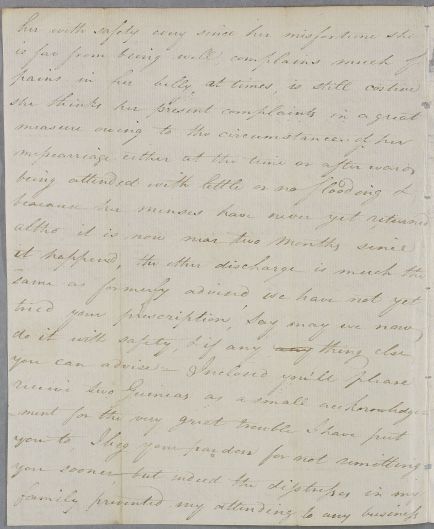 her with safety every since her misfortune she
is far from being well, complains much of
pains in her belly, at times, is still costive
she thinks her present complaints in a great
measure owing to the circumstance of her
miscarriage either at the time or afterwards
being attended with little or no flooding &
because her menses have never yet returned
altho it is now near two Months since
it happend, the other discharge is much the
same as formerly advised we have not yet
tried your prescription, Say may we now
do it with safety, & if any any thing else
you can advise — Inclosed you'll please
receive two Guineas as a small acknowledge-
-ment for the very great trouble I have put
you to, I beg your pardon for not remitting
you sooner but indeed the distresses in my
family prevented my attending to any business